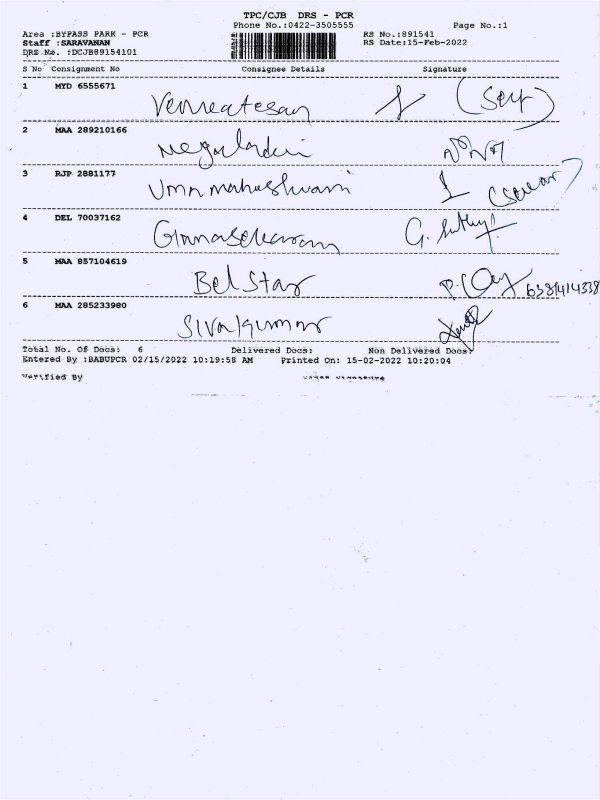 TPC/CJB DRS - PCR
Phone No.:0422-3505555 Page No.:1
Area :BYPASS PARK - PCR RS No.:891541
Staff :SARAVANAN RS Date:15-Feb-2022
DRS No. :DCJB89154101
S No Consignment No Consignee Details Signature
1 MYD 6555671
(Self)
2 MAA 289210166
3 RJP 2881177
Umamaheshwari
4 DEL 70037162
Gunasekaran G.
5 MAA 857104619
Bel Star 6381414338
6 MAA 285233980
Sivakumar
Total No. Of Docs: 6 Delivered Docs: Non Delivered Docs:
Entered By :BABUPCR 02/15/2022 10:19:58 AM Printed On: 15-02-2022 10:20:04
Verified By